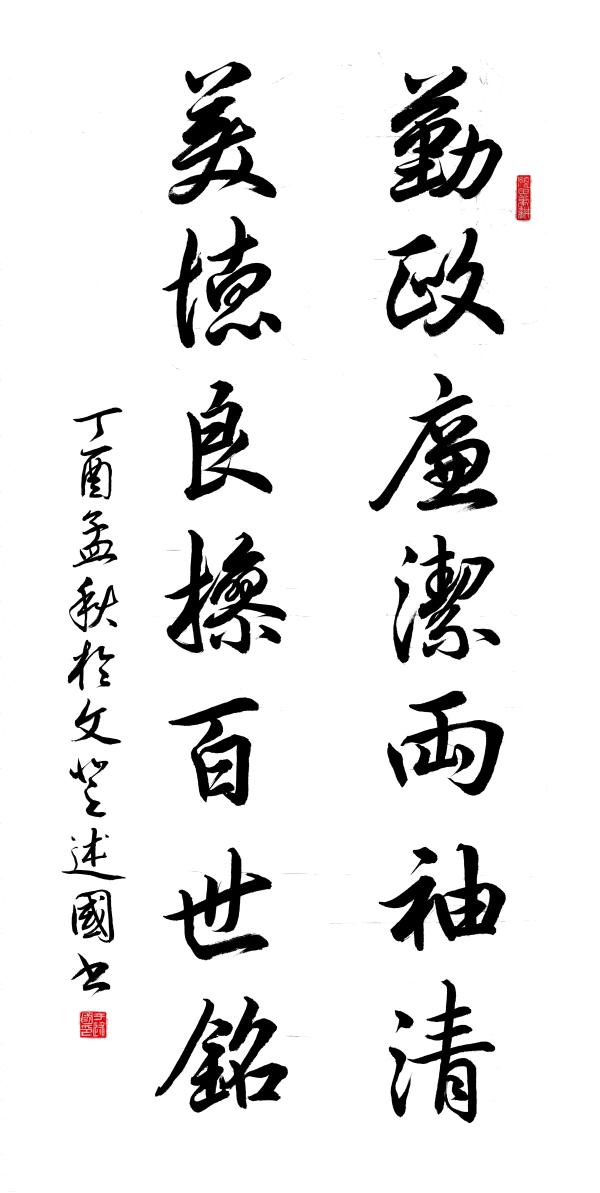 勤政廉潔兩袖清
美德良操百世銘
丁酉孟秋於文登述國書